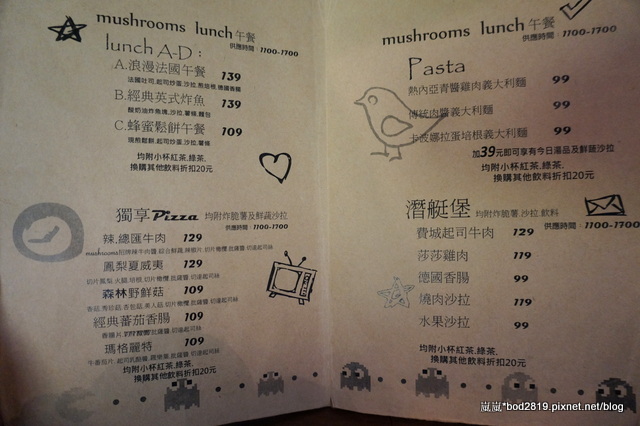 mushrooms lunch 午餐
供應時間：1100-1700
lunch A-D：
A.浪漫法國午餐 139
法國吐司.起司炒蛋.沙拉.煎培根.德國香腸
B.經典英式炸魚 139
酸奶油炸魚塊.沙拉.薯條.麵包
C.蜂蜜鬆餅午餐 109
現煎鬆餅.起司炒蛋.沙拉.薯條
均附小杯紅茶.綠茶.
換購其他飲料折扣20元.
獨享Pizza 均附炸脆薯及鮮蔬沙拉
供應時間：1100-1700
辣.總匯牛肉 129
鳳梨夏威夷 127
森林野鮮菇 109
經典蕃茄香腸 109
瑪格麗特 109
均附小杯紅茶.綠茶.
換購其他飲料折扣20元
mushrooms lunch 午餐
供應時間：1100-1700
Pasta
熱內亞青醬雞肉義大利麵 99
傳統肉醬義大利麵 99
卡波娜拉蛋培根義大利麵 99
加39元即可享有今日湯品及鮮蔬沙拉
均附小杯紅茶.綠茶.
換購其他飲料折扣20元.
潛艇堡 均附炸脆薯.沙拉.飲料
供應時間：1100-1700
費城起司牛肉 129
莎莎雞肉 119
德國香腸 99
燒肉沙拉 119
水果沙拉 99
均附小杯紅茶.綠茶.
換購其他飲料折扣20元
嵐嵐*bod2819.pixnet.net/blog